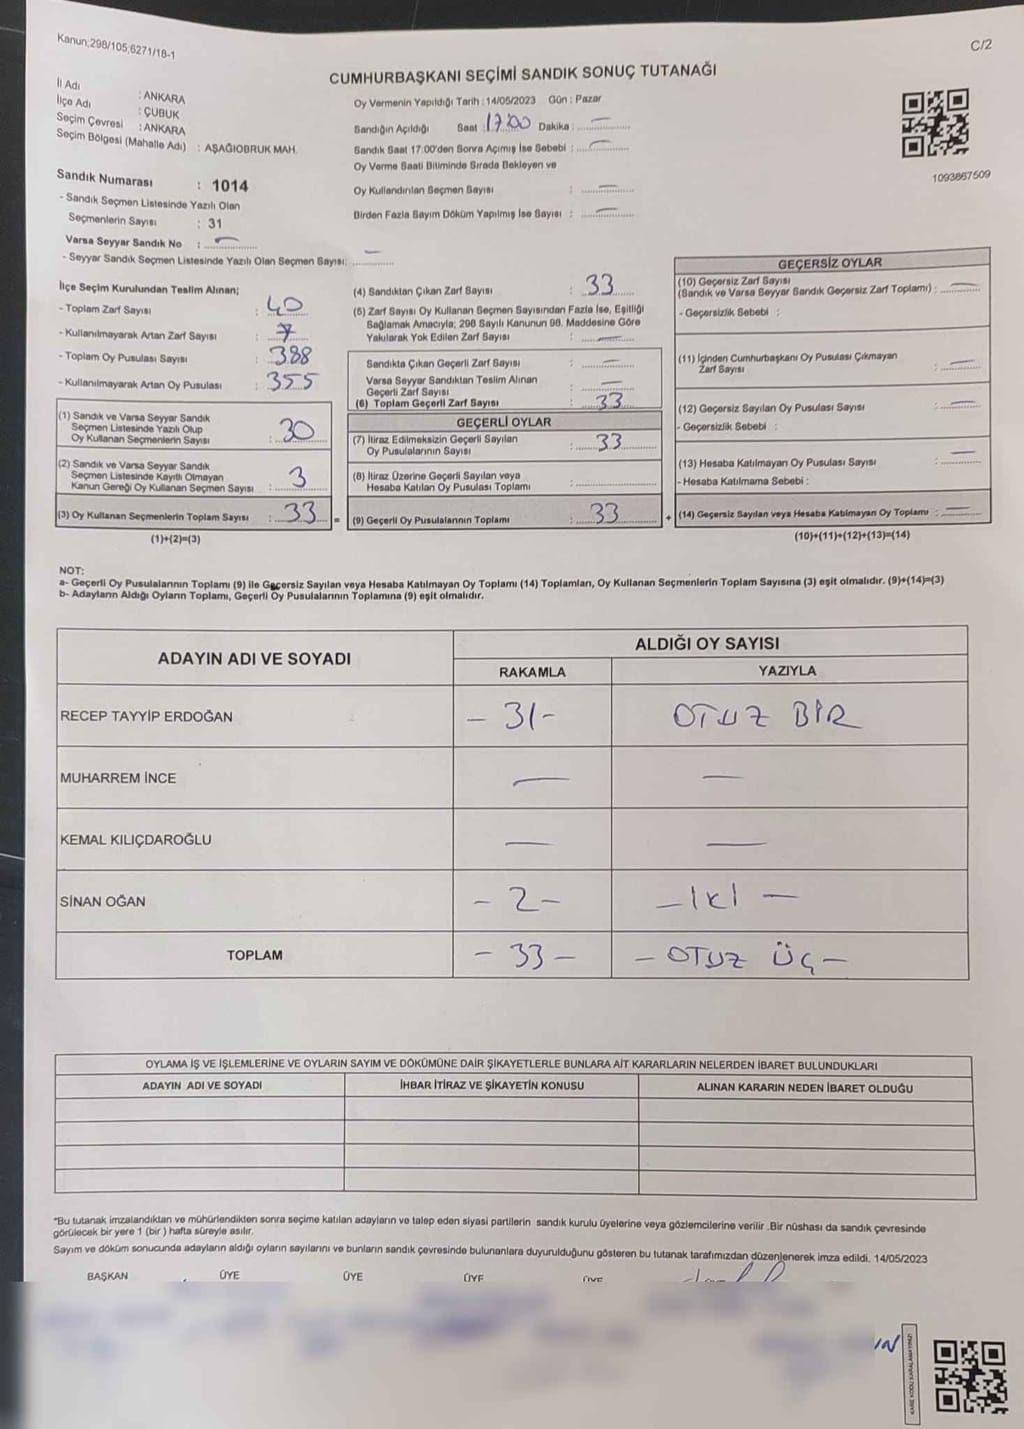 Kanun;298/105;6271/18-1
C/2
CUMHURBAŞKANI SEÇİMİ SANDIK SONUÇ TUTANAĞI
İl Adı : ANKARA
İlçe Adı : ÇUBUK
Seçim Çevresi : ANKARA
Seçim Bölgesi (Mahalle Adı) : AŞAĞIOBRUK MAH.
Sandık Numarası : 1014
- Sandık Seçmen Listesinde Yazılı Olan
Seçmenlerin Sayısı : 31
Varsa Seyyar Sandık No : —
- Seyyar Sandık Seçmen Listesinde Yazılı Olan Seçmen Sayısı: —
Oy Vermenin Yapıldığı Tarih : 14/05/2023 Gün : Pazar
Sandığın Açıldığı Saat : 17:00 Dakika : —
Sandık Saat 17:00'den Sonra Açımış İse Sebebi : —
Oy Verme Saati Bitiminde Sırada Bekleyen ve
Oy Kullandırılan Seçmen Sayısı : —
Birden Fazla Sayım Döküm Yapılmış İse Sayısı : —
1093867509
İlçe Seçim Kurulundan Teslim Alınan;
- Toplam Zarf Sayısı : 40
- Kullanılmayarak Artan Zarf Sayısı : 7
- Toplam Oy Pusulası Sayısı : 388
- Kullanılmayarak Artan Oy Pusulası : 355
(1) Sandık ve Varsa Seyyar Sandık
Seçmen Listesinde Yazılı Olup
Oy Kullanan Seçmenlerin Sayısı : 30
(2) Sandık ve Varsa Seyyar Sandık
Seçmen Listesinde Kayıtlı Olmayan
Kanun Gereği Oy Kullanan Seçmen Sayısı : 3
(3) Oy Kullanan Seçmenlerin Toplam Sayısı : 33 =
(1)+(2)=(3)
(4) Sandıktan Çıkan Zarf Sayısı : 33
(5) Zarf Sayısı Oy Kullanan Seçmen Sayısından Fazla İse, Eşitliği
Sağlamak Amacıyla; 298 Sayılı Kanunun 98. Maddesine Göre
Yakılarak Yok Edilen Zarf Sayısı : —
Sandıkta Çıkan Geçerli Zarf Sayısı : —
Varsa Seyyar Sandıktan Teslim Alınan
Geçerli Zarf Sayısı : —
(6) Toplam Geçerli Zarf Sayısı : 33
GEÇERLİ OYLAR
(7) İtiraz Edilmeksizin Geçerli Sayılan
Oy Pusulalarının Sayısı : 33
(8) İtiraz Üzerine Geçerli Sayılan veya
Hesaba Katılan Oy Pusulası Toplamı :
(9) Geçerli Oy Pusulalarının Toplamı : 33 +
GEÇERSİZ OYLAR
(10) Geçersiz Zarf Sayısı
(Sandık ve Varsa Seyyar Sandık Geçersiz Zarf Toplamı) : —
- Geçersizlik Sebebi :
(11) İçinden Cumhurbaşkanı Oy Pusulası Çıkmayan
Zarf Sayısı : —
(12) Geçersiz Sayılan Oy Pusulası Sayısı : —
- Geçersizlik Sebebi :
(13) Hesaba Katılmayan Oy Pusulası Sayısı : —
- Hesaba Katılmama Sebebi :
(14) Geçersiz Sayılan veya Hesaba Katılmayan Oy Toplamı : —
(10)+(11)+(12)+(13)=(14)
NOT:
a- Geçerli Oy Pusulalarının Toplamı (9) ile Geçersiz Sayılan veya Hesaba Katılmayan Oy Toplamı (14) Toplamları, Oy Kullanan Seçmenlerin Toplam Sayısına (3) eşit olmalıdır. (9)+(14)=(3)
b- Adayların Aldığı Oyların Toplamı, Geçerli Oy Pusulalarının Toplamına (9) eşit olmalıdır.
ADAYIN ADI VE SOYADI
ALDIĞI OY SAYISI
RAKAMLA YAZIYLA
RECEP TAYYİP ERDOĞAN - 31 - OTUZ BİR
MUHARREM İNCE — —
KEMAL KILIÇDAROĞLU — —
SİNAN OĞAN - 2 - - İKİ -
TOPLAM - 33 - - OTUZ ÜÇ -
OYLAMA İŞ VE İŞLEMLERİNE VE OYLARIN SAYIM VE DÖKÜMÜNE DAİR ŞİKAYETLERLE BUNLARA AİT KARARLARIN NELERDEN İBARET BULUNDUKLARI
ADAYIN ADI VE SOYADI İHBAR İTİRAZ VE ŞİKAYETİN KONUSU ALINAN KARARIN NEDEN İBARET OLDUĞU
"Bu tutanak imzalandıktan ve mühürlendikten sonra seçime katılan adayların ve talep eden siyasi partilerin sandık kurulu üyelerine veya gözlemcilerine verilir .Bir nüshası da sandık çevresinde
görülecek bir yere 1 (bir ) hafta süreyle asılır.
Sayım ve döküm sonucunda adayların aldığı oyların sayılarını ve bunların sandık çevresinde bulunanlara duyurulduğunu gösteren bu tutanak tarafımızdan düzenlenerek imza edildi. 14/05/2023
BAŞKAN ÜYE ÜYE ÜYE ÜYE
KARE KODU KARALAMAYINIZ!